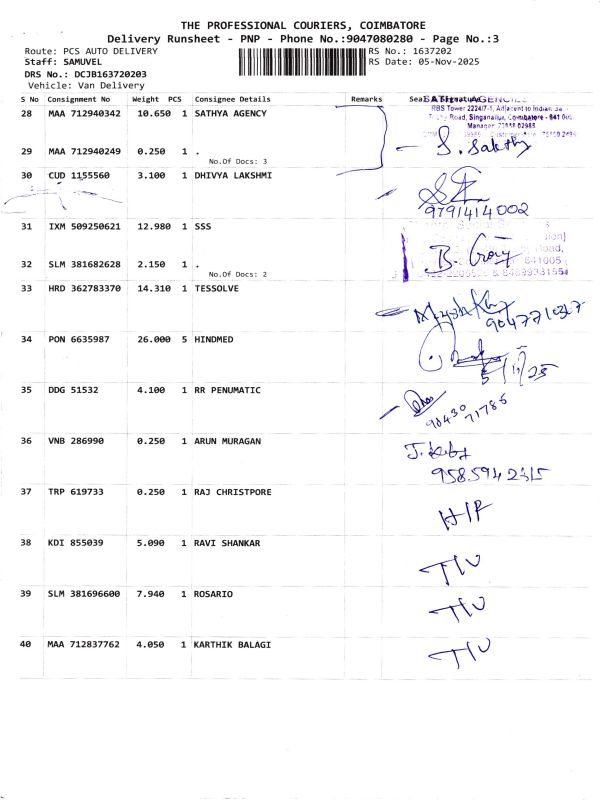 THE PROFESSIONAL COURIERS, COIMBATORE
Delivery Runsheet - PNP - Phone No.:9047080280 - Page No.:3
Route: PCS AUTO DELIVERY
RS No.: 1637202
Staff: SAMUVEL
RS Date: 05-Nov-2025
DRS No.: DCJB163720203
Vehicle: Van Delivery
S No Consignment No Weight PCS Consignee Details Remarks Seal & Signature
SATHYA AGENCIES
RBS Tower 222/4/7-1, Adjacent to Indian
Road, Singanallur, Coimbatore - 641
Manager
28 MAA 712940342 10.650 1 SATHYA AGENCY
29 MAA 712940249 0.250 1 .
No.Of Docs: 3
S. Sakthy
30 CUD 1155560 3.100 1 DHIVYA LAKSHMI
9791414002
31 IXM 509250621 12.980 1 SSS
Road,
641005
32 SLM 381682628 2.150 1 .
No.Of Docs: 2
33 HRD 362783370 14.310 1 TESSOLVE
34 PON 6635987 26.000 5 HINDMED
5/11/25
35 DDG 51532 4.100 1 RR PENUMATIC
90430 71786
36 VNB 286990 0.250 1 ARUN MURAGAN
37 TRP 619733 0.250 1 RAJ CHRISTPORE
38 KDI 855039 5.090 1 RAVI SHANKAR
T/U
39 SLM 381696600 7.940 1 ROSARIO
T/U
40 MAA 712837762 4.050 1 KARTHIK BALAGI
T/U